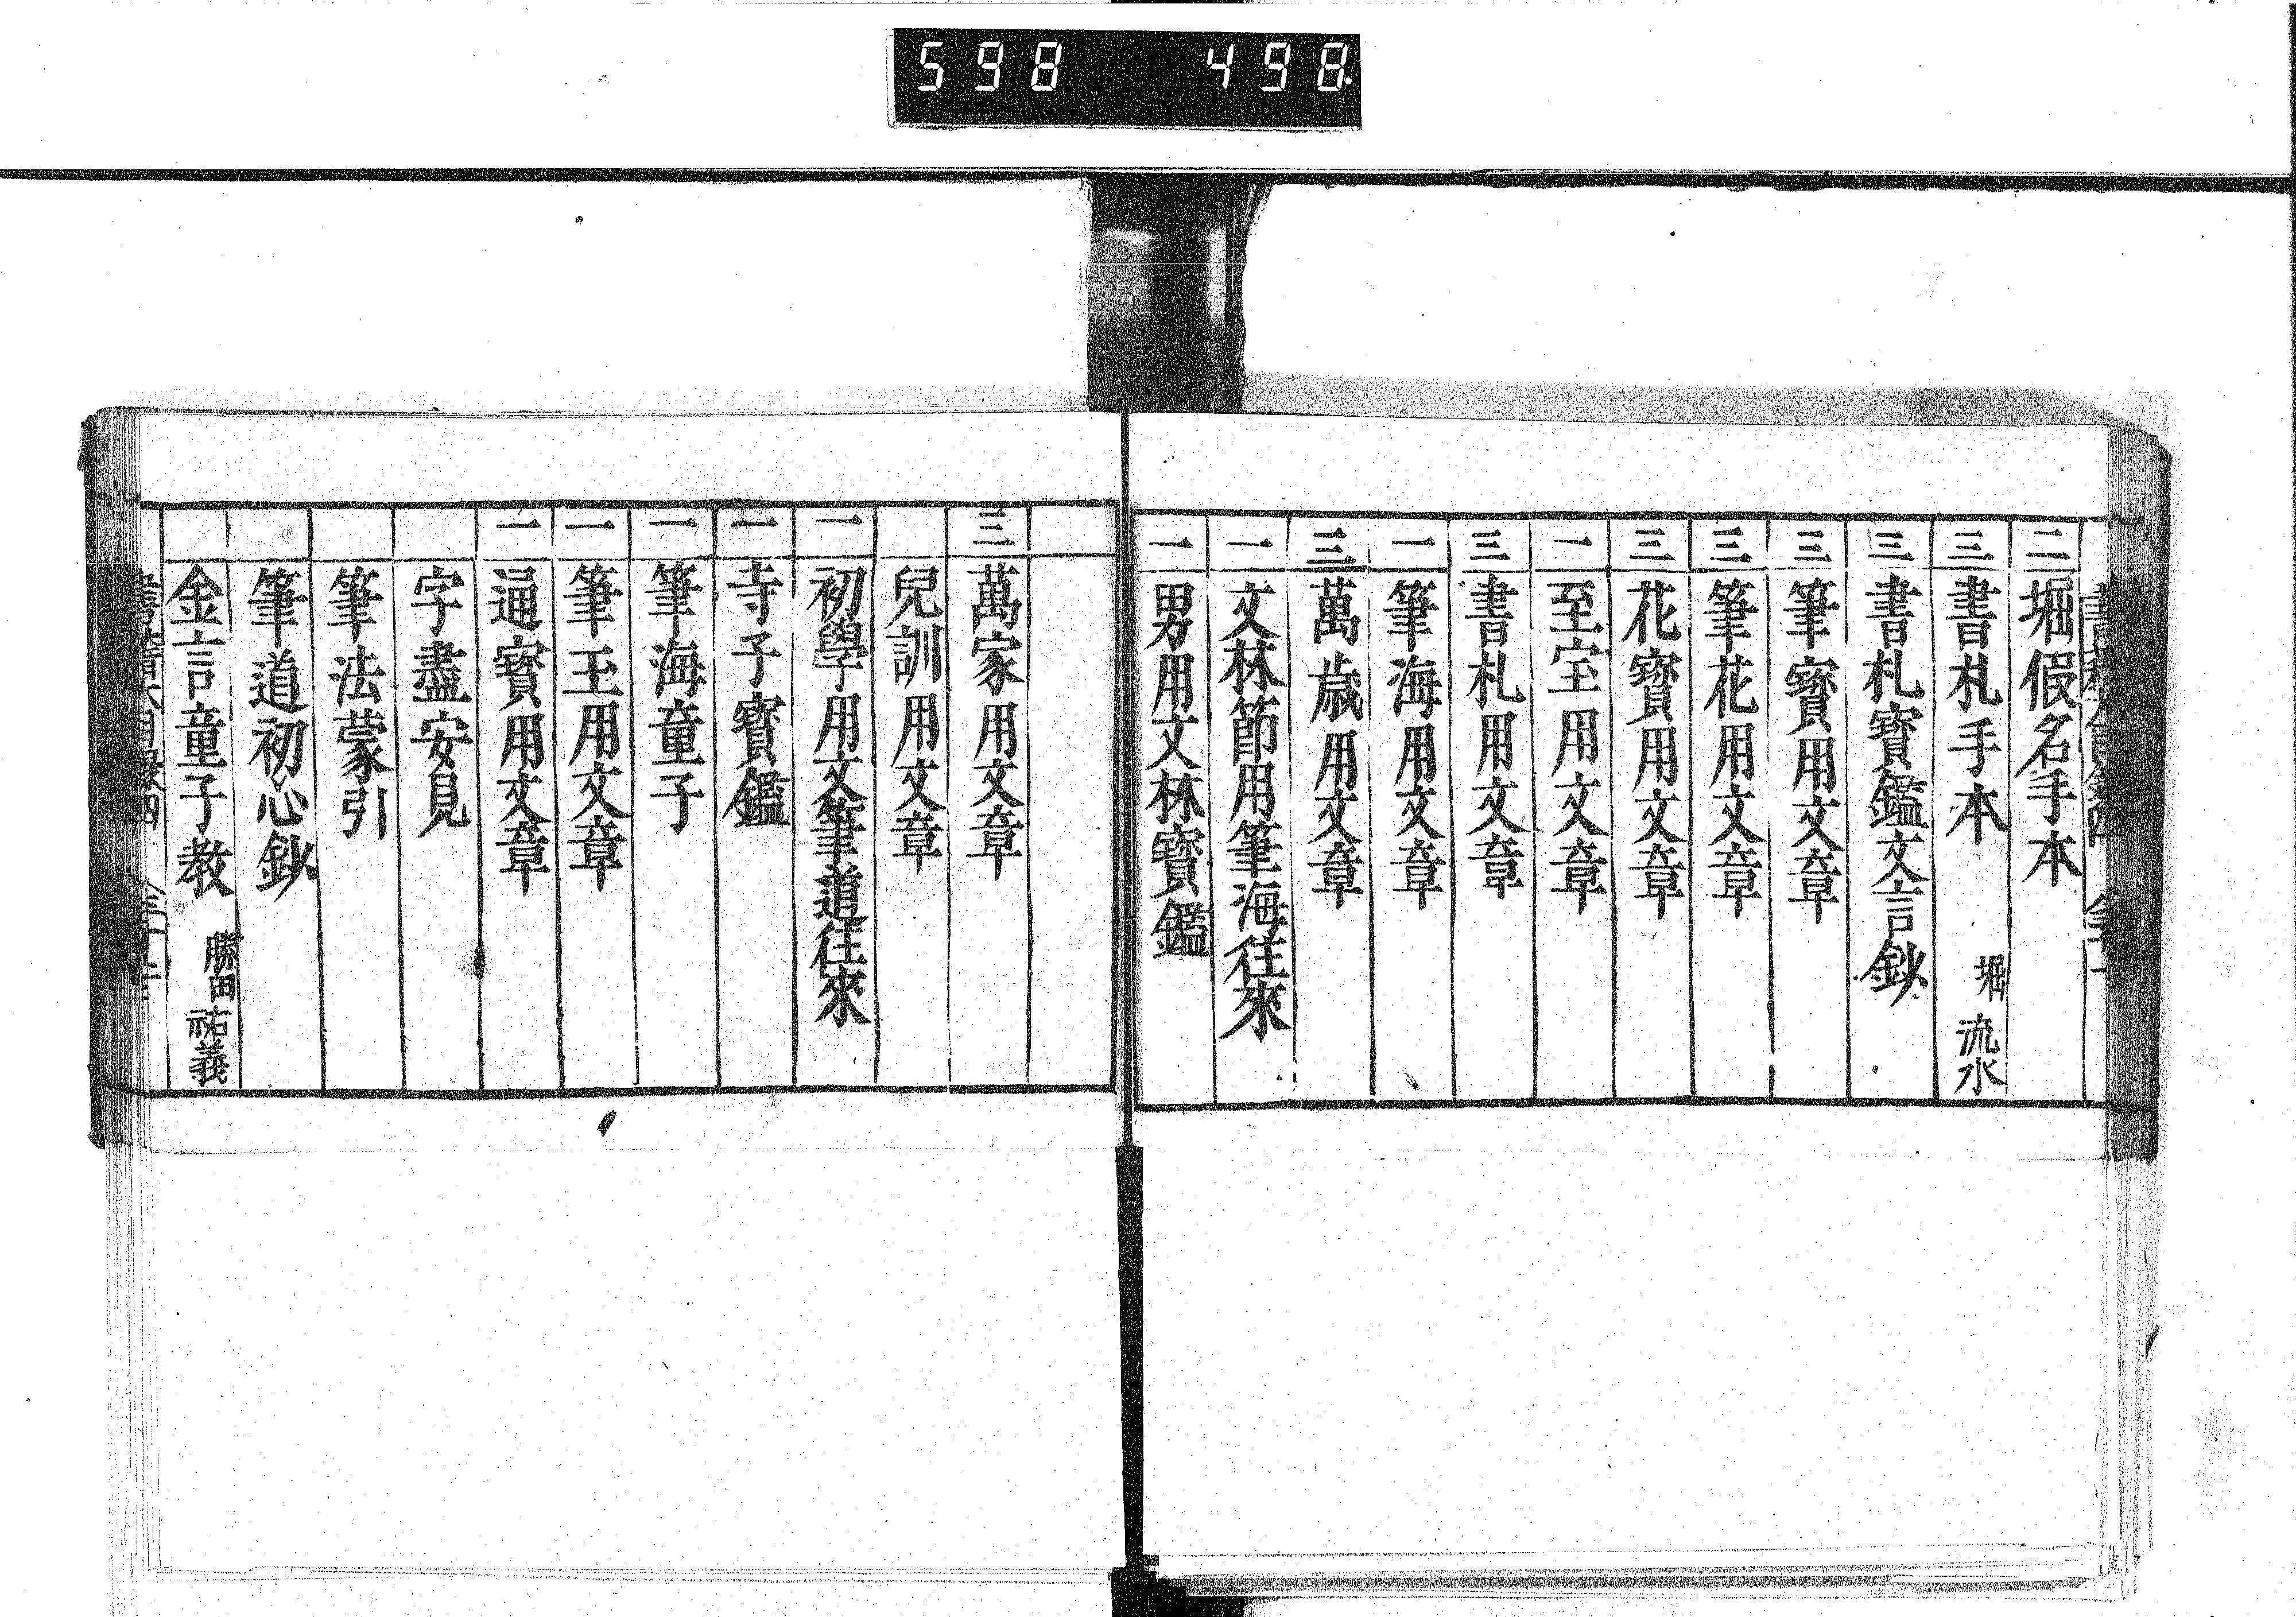 598 498
二 堀假名手本
三 書札手本 堀流水
三 書札寳鑑文言鈔
三 筆寳用文章
三 筆花用文章
三 花寳用文章
一 至宝用文章
三 書札用文章
一 筆海用文章
三 萬歳用文章
一 文林節用筆海往來
一 男用文林寳鑑
三 萬家用文章
兒訓用文章
一 初學用文筆道往來
一 寺子寳鑑
一 筆海童子
一 筆王用文章
一 通寳用文章
字盡安見
筆法蒙引
筆道初心鈔
金言童子教 勝田祐義